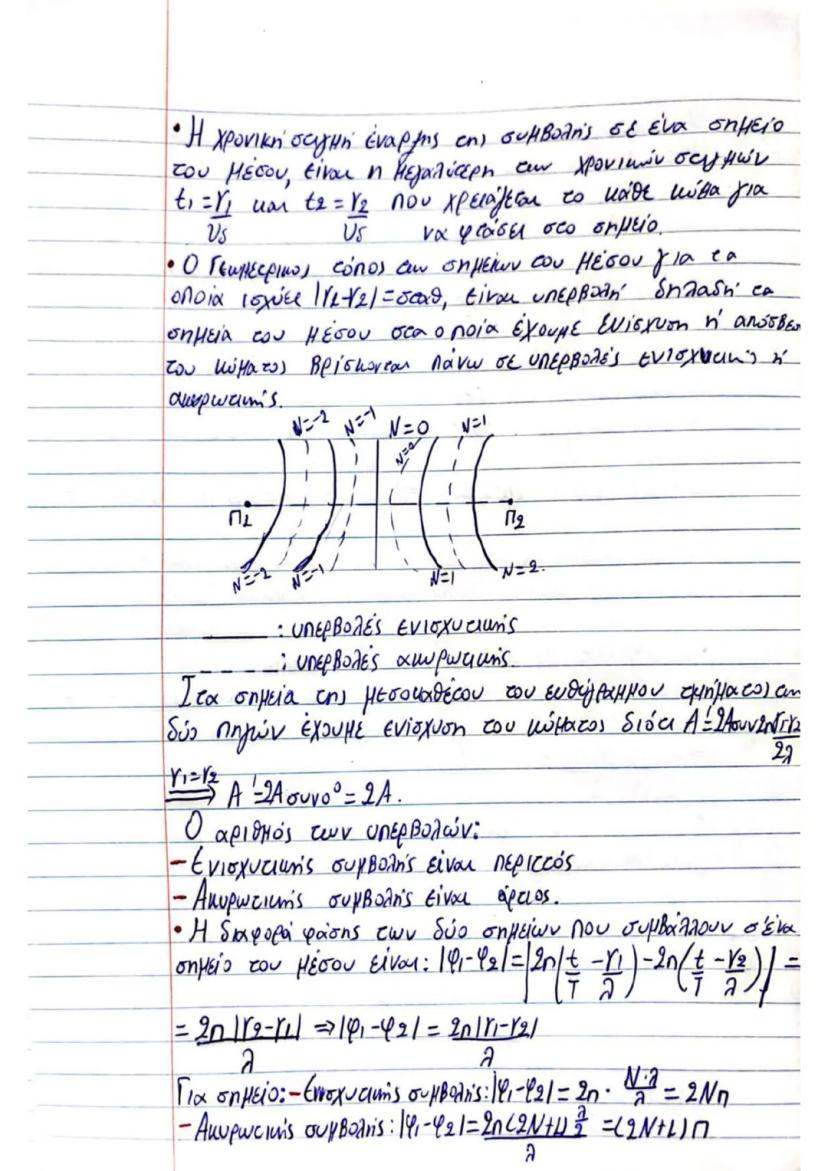 • Η χρονική στιγμή έναρξης της συμβολής σε ένα σημείο
του μέσου, είναι η μεγαλύτερη των χρονικών στιγμών
t1 = r1/υs και t2 = r2/υs που χρειάζεται το κάθε κύμα για
να φτάσει στο σημείο.
• Ο Γεωμετρικος τόπος των σημείων του μέσου για τα
οποία ισχύει |r1-r2|=σταθ, είναι υπερβολή δηλαδή τα
σημεία του μέσου στα οποία έχουμε ενίσχυση ή απόσβεση
του κύματος βρίσκονται πάνω σε υπερβολές ενισχυτικής ή
ακυρωτικής.
N=-2 N=-1 N=0 N=1
N=0
Π1 Π2
N=-2 N=-1 N=1 N=2.
____ : υπερβολές ενισχυτικής
_ _ _ _ : υπερβολές ακυρωτικής.
Στα σημεία της μεσοκαθέτου του ευθύγραμμου τμήματος των
δύο πηγών έχουμε ενίσχυση του κύματος διότι A'=2Aσυν2π (r1-r2)/2λ
r1=r2 ⟹ A'=2Aσυν0° = 2A.
Ο αριθμός των υπερβολών:
- Ενισχυτικής συμβολής είναι περιττός
- Ακυρωτικής συμβολής είναι άρτιος.
• Η διαφορά φάσης των δύο σημείων που συμβάλλουν σ'ένα
σημείο του μέσου είναι: |φ1-φ2| = |2π(t/T - r1/λ) - 2π(t/T - r2/λ)| =
= 2π|r2-r1|/λ ⇒ |φ1-φ2| = 2π|r1-r2|/λ
Για σημείο: - Ενισχυτικής συμβολής: |φ1-φ2| = 2π · N·λ/λ = 2Nπ
- Ακυρωτικής συμβολής: |φ1-φ2| = 2π(2N+1) λ/2 /λ = (2N+1)π